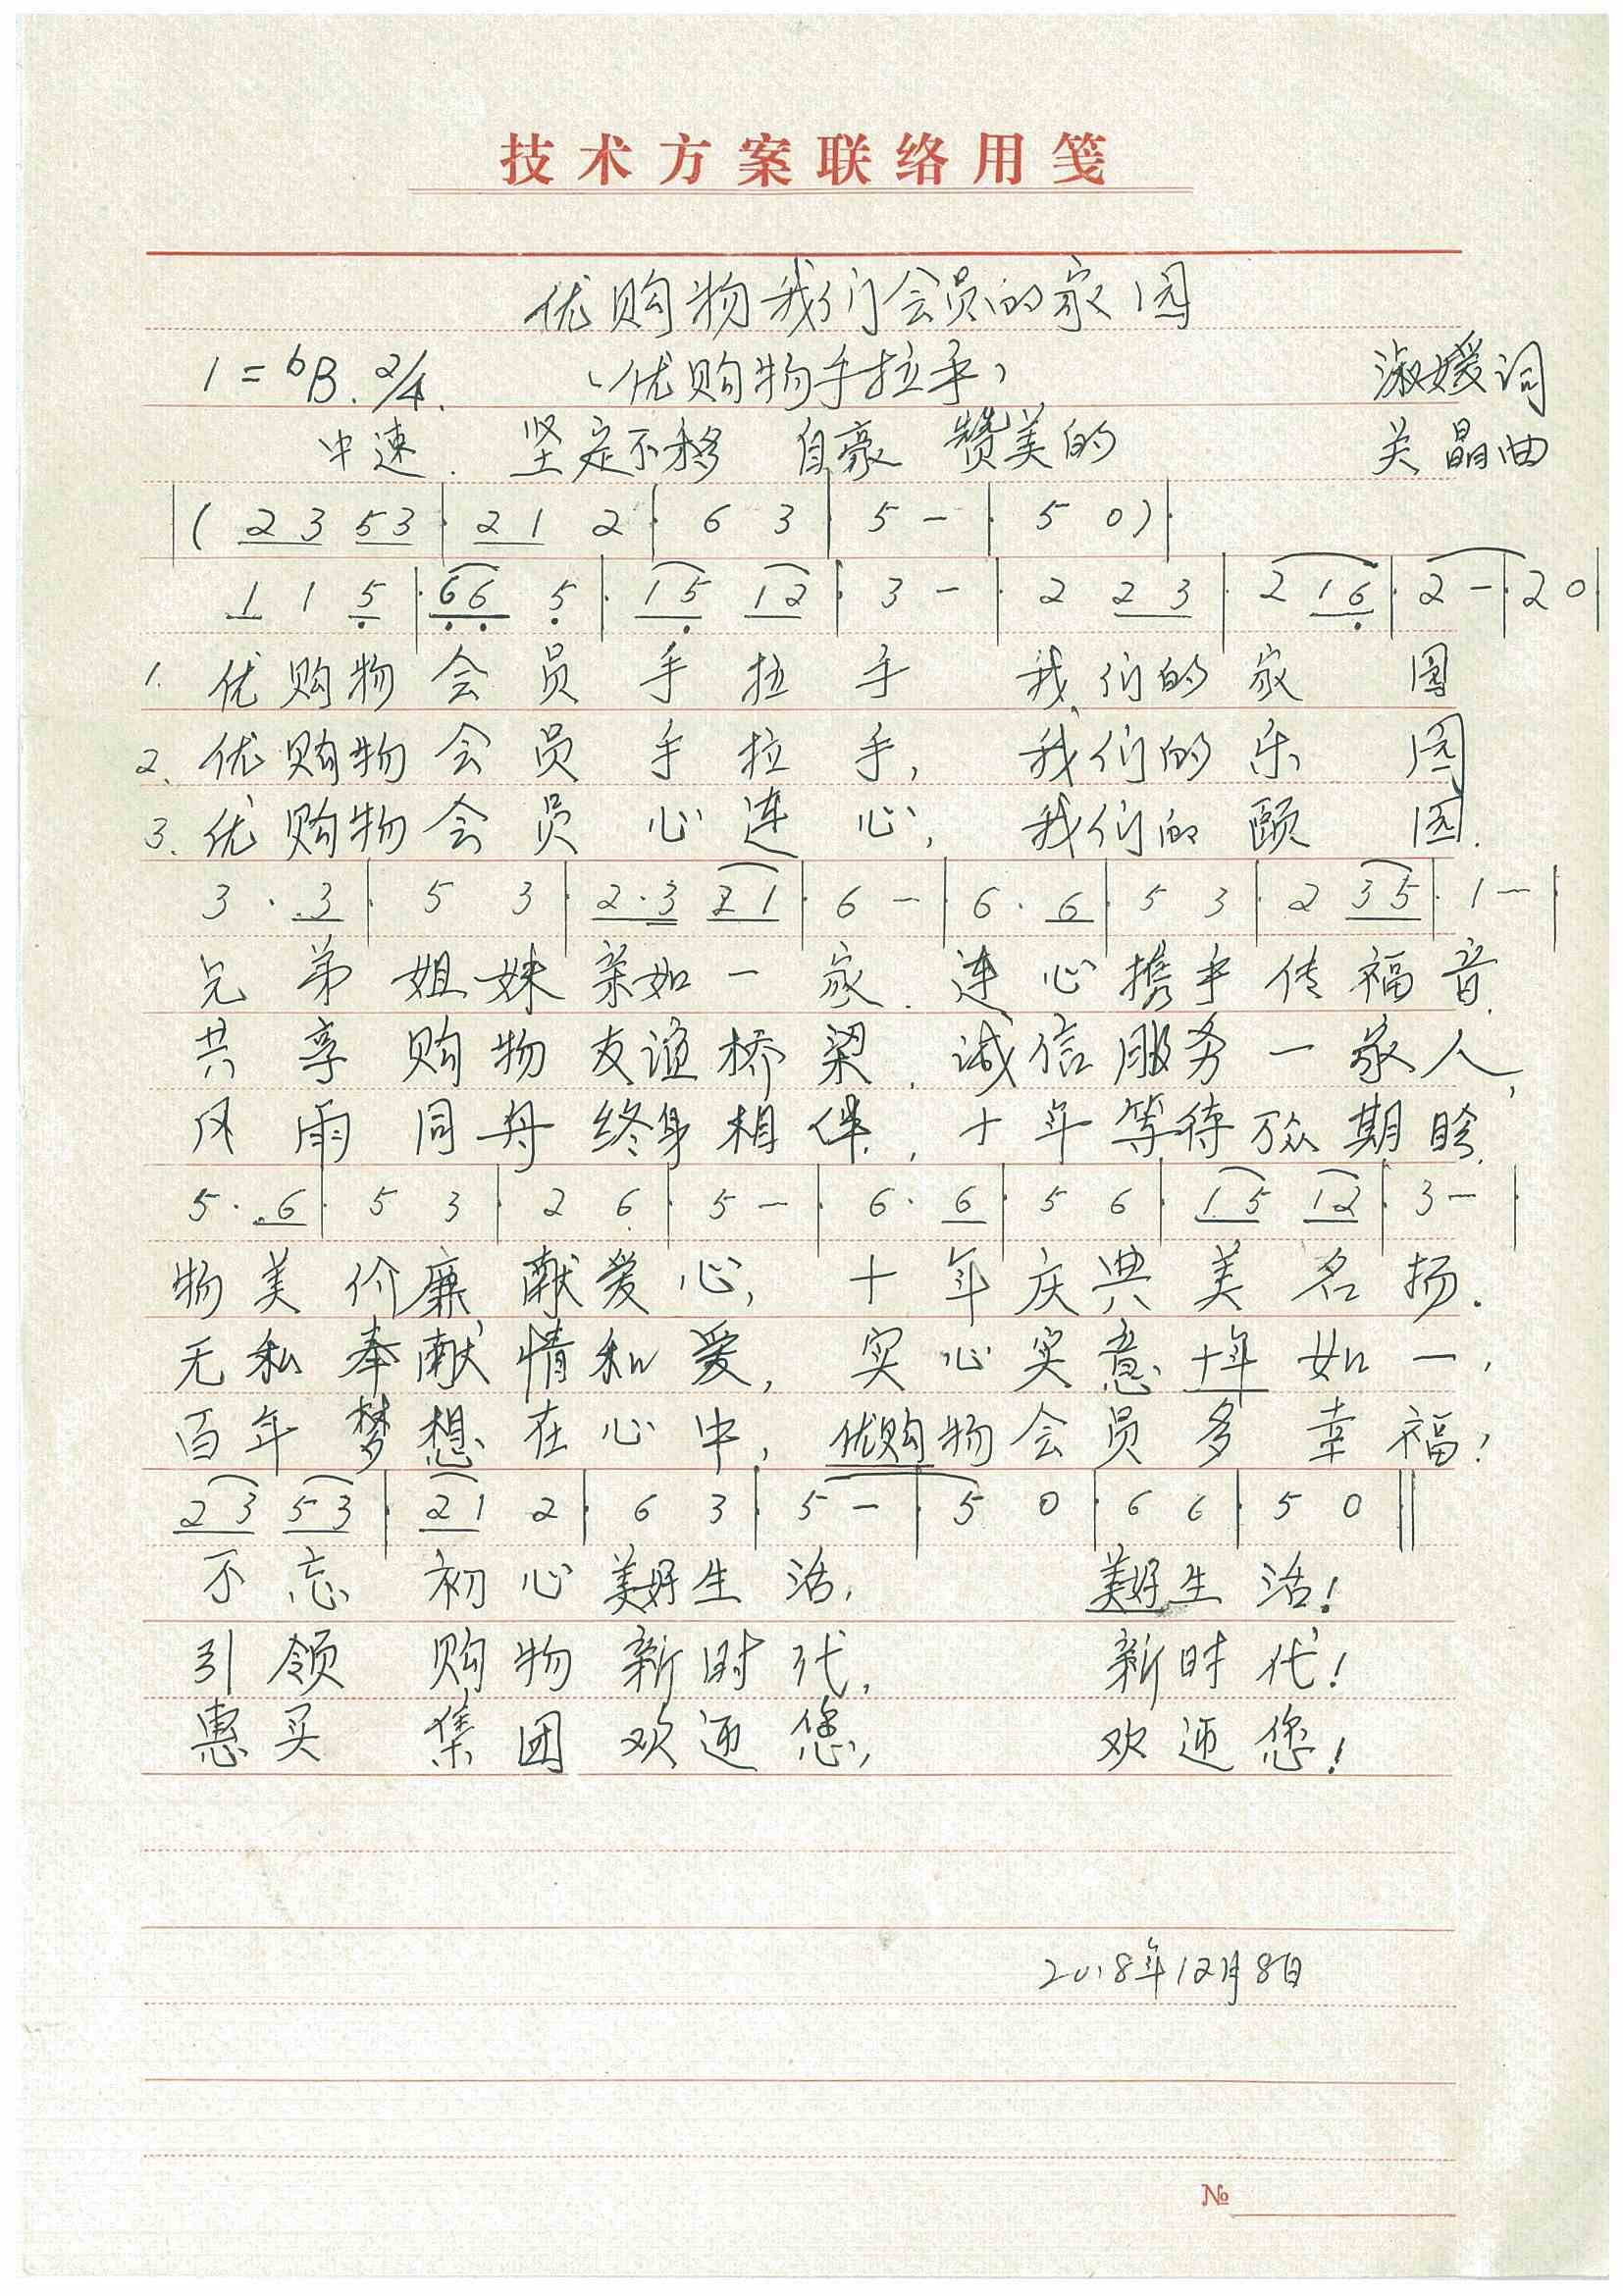 技术方案联络用笺
优购物我们会员的家园
1=♭B. 2/4. (优购物手拉手) 淑媛词
中速. 坚定不移 自豪 赞美的 关晶曲
|( 2 3 5 3 | 2 1 2 | 6 3 | 5 - | 5 0 )|
1 1 5 | 6 6 5 | 1 5 1 2 | 3 - | 2 2 3 | 2 1 6 | 2 - | 2 0 |
1. 优购物会员手拉手 我们的家园
2. 优购物会员手拉手, 我们的乐园
3. 优购物会员心连心, 我们的颐园.
3 · 3 | 5 3 | 2 · 3 2 1 | 6 - | 6 · 6 | 5 3 | 2 3 5 | 1 - |
兄弟姐妹亲如一家. 连心携手传福音.
共享购物友谊桥梁. 诚信服务一家人,
风雨同舟终身相伴. 十年等待众期盼.
5 · 6 | 5 3 | 2 6 | 5 - | 6 · 6 | 5 6 | 1 5 1 2 | 3 - |
物美价廉献爱心, 十年庆典美名扬.
无私奉献情和爱, 实心实意十年如一,
百年梦想在心中, 优购物会员多幸福,
2 3 5 3 | 2 1 2 | 6 3 | 5 - | 5 0 | 6 6 | 5 0 ‖
不忘初心美好生活, 美好生活!
引领购物新时代, 新时代!
惠买集团欢迎您, 欢迎您!
2018年12月8日
№